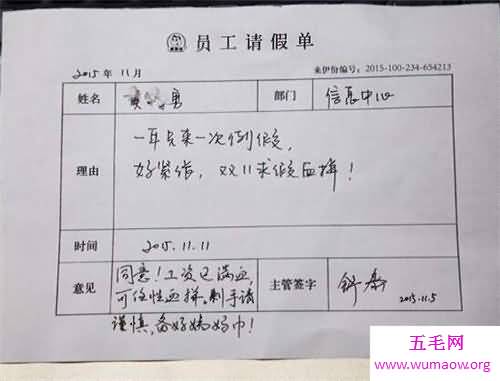 员工请假单
2015年11月
来伊份编号：2015-100-234-654213
姓名 勇 部门 信息中心
一年只来一次例假,
理由
好紧张, 双11求假血拼!
时间 2015.11.11
同意!工资已满血,
意见 可任性血拼。剁手请 主管签字
2015.11.5
谨慎,备好妈妈巾!
五毛网
www.wumaow.org